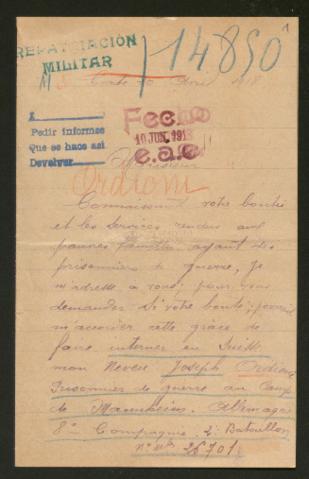 1
REPATRIACIÓN
MILITAR
14850
1918
A
Pedir informes
Que se haga así
Devolver
Fecho
10 JUN. 1918
e.a.e.
Monsieur
Ordioni
Connaissant votre bonté
et les services rendus aux
pauvres familles ayant des
prisonniers de guerre, je
m'adresse a vous; pour vous
demander si votre bonté; pourrait
m'accorder cette grâce de
faire interner en Suisse
mon Neveu Joseph Ordioni
Prisonnier de guerre au Camp
de Mannheim. Allemagne
8e Compagnie. 2e Bataillon
26701